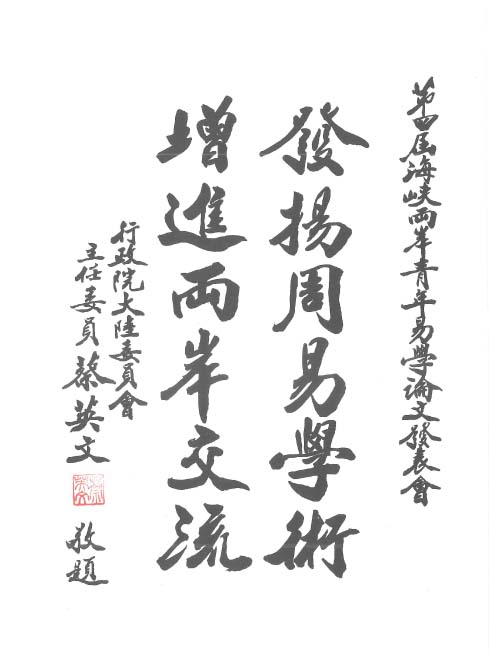 第四屆海峽兩岸青年易學論文發表會
發揚周易學術
增進兩岸交流
行政院大陸委員會
主任委員蔡英文
敬題